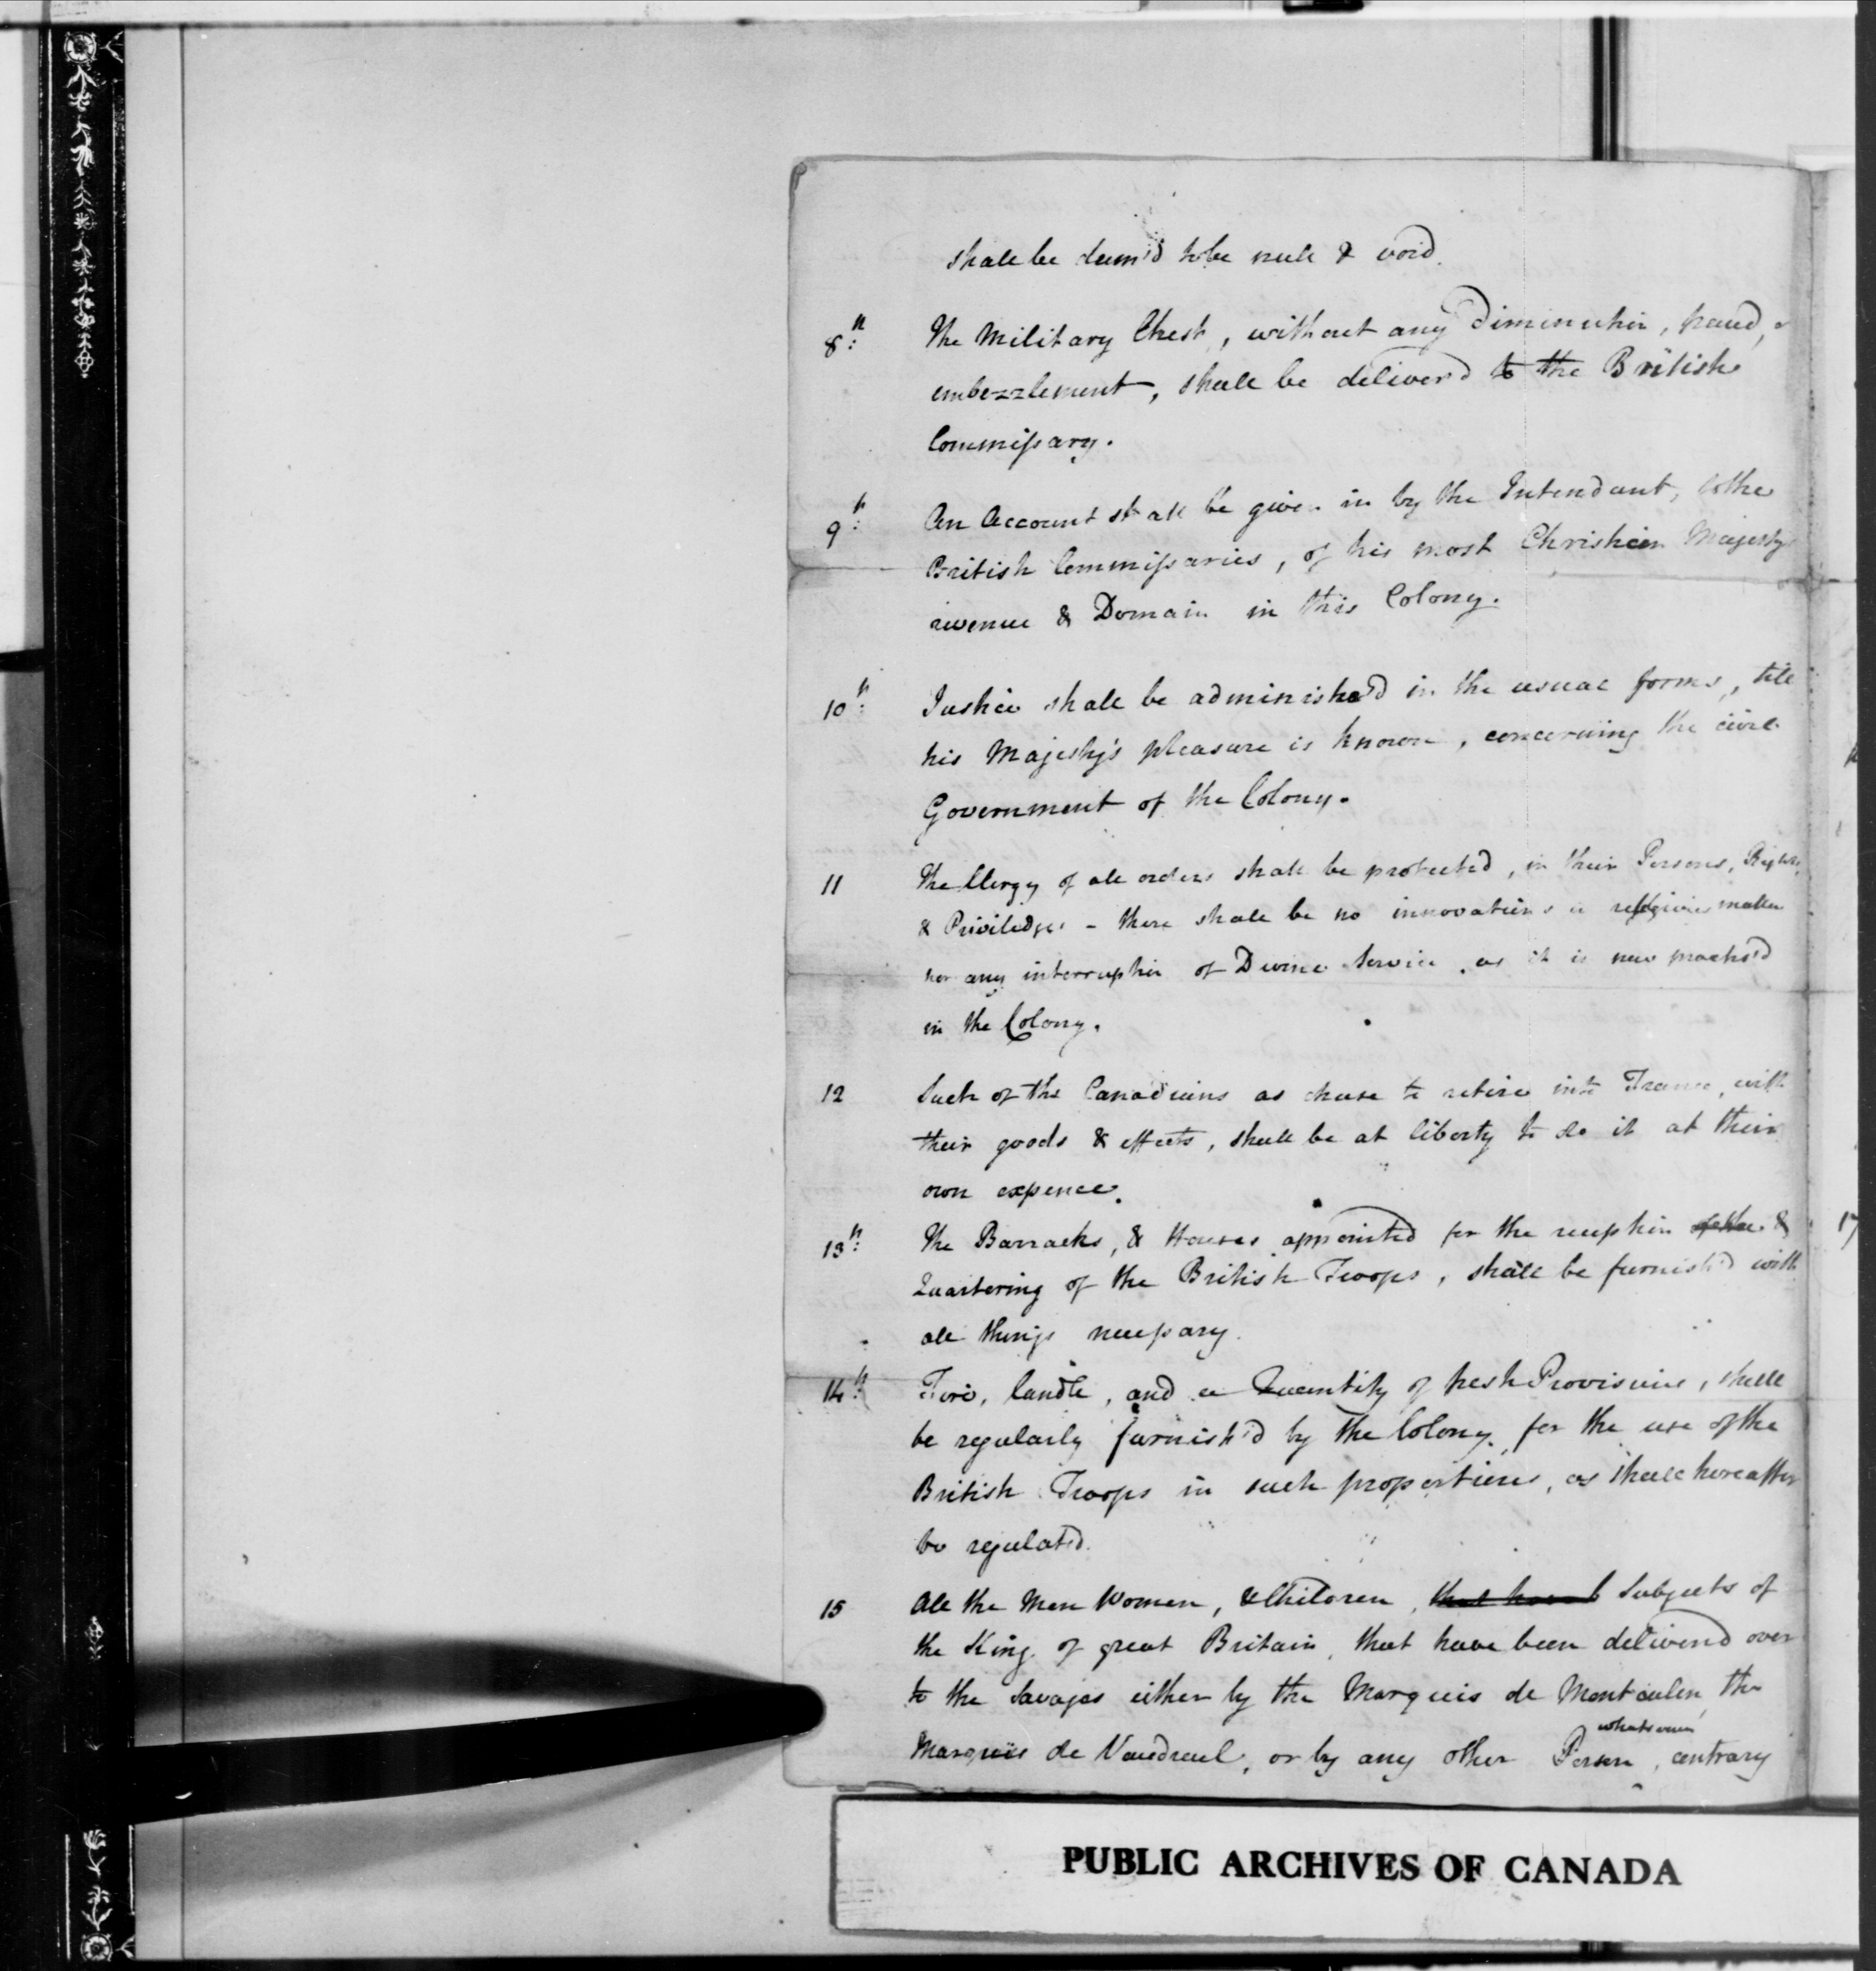 shall be deem'd to be null & void.
8th: The Military Chest, without any Diminution, fraud, or
embezzlement, shall be deliver'd to the British
Commissary.
9th: An Account shall be given in by the Intendant, to the
British Commissaries, of his most Christian Majesty's
revenue & Domain in this Colony.
10th: Justice shall be administer'd in the usual forms, till
his Majesty's pleasure is known, concerning the civil
Government of the Colony.
11 The Clergy of all orders shall be protected, in their Persons, Rights,
& Priviledges - there shall be no innovations in religious matters
nor any interruption of Divine Service, as it is now practis'd
in the Colony.
12 Such of the Canadians as chuse to retire into France, with
their goods & effects, shall be at liberty to do it at their
own expence.
13th: The Barracks, & Houses appointed for the reception of the &
Quartering of the British Troops, shall be furnish'd with
all things necessary.
14th: Fire, Candle, and a Quantity of fresh Provisions, shall
be regularly furnish'd by the Colony for the use of the
British Troops in such proportions, as shall hereafter
be regulated.
15 All the Men Women, & Children, that have b Subjects of
the King of great Britain, that have been deliver'd over
to the Savages either by the Marquis de Montcalm, the
whatsoever
Marquis de Vaudreuil, or by any other Person, contrary
17
PUBLIC ARCHIVES OF CANADA